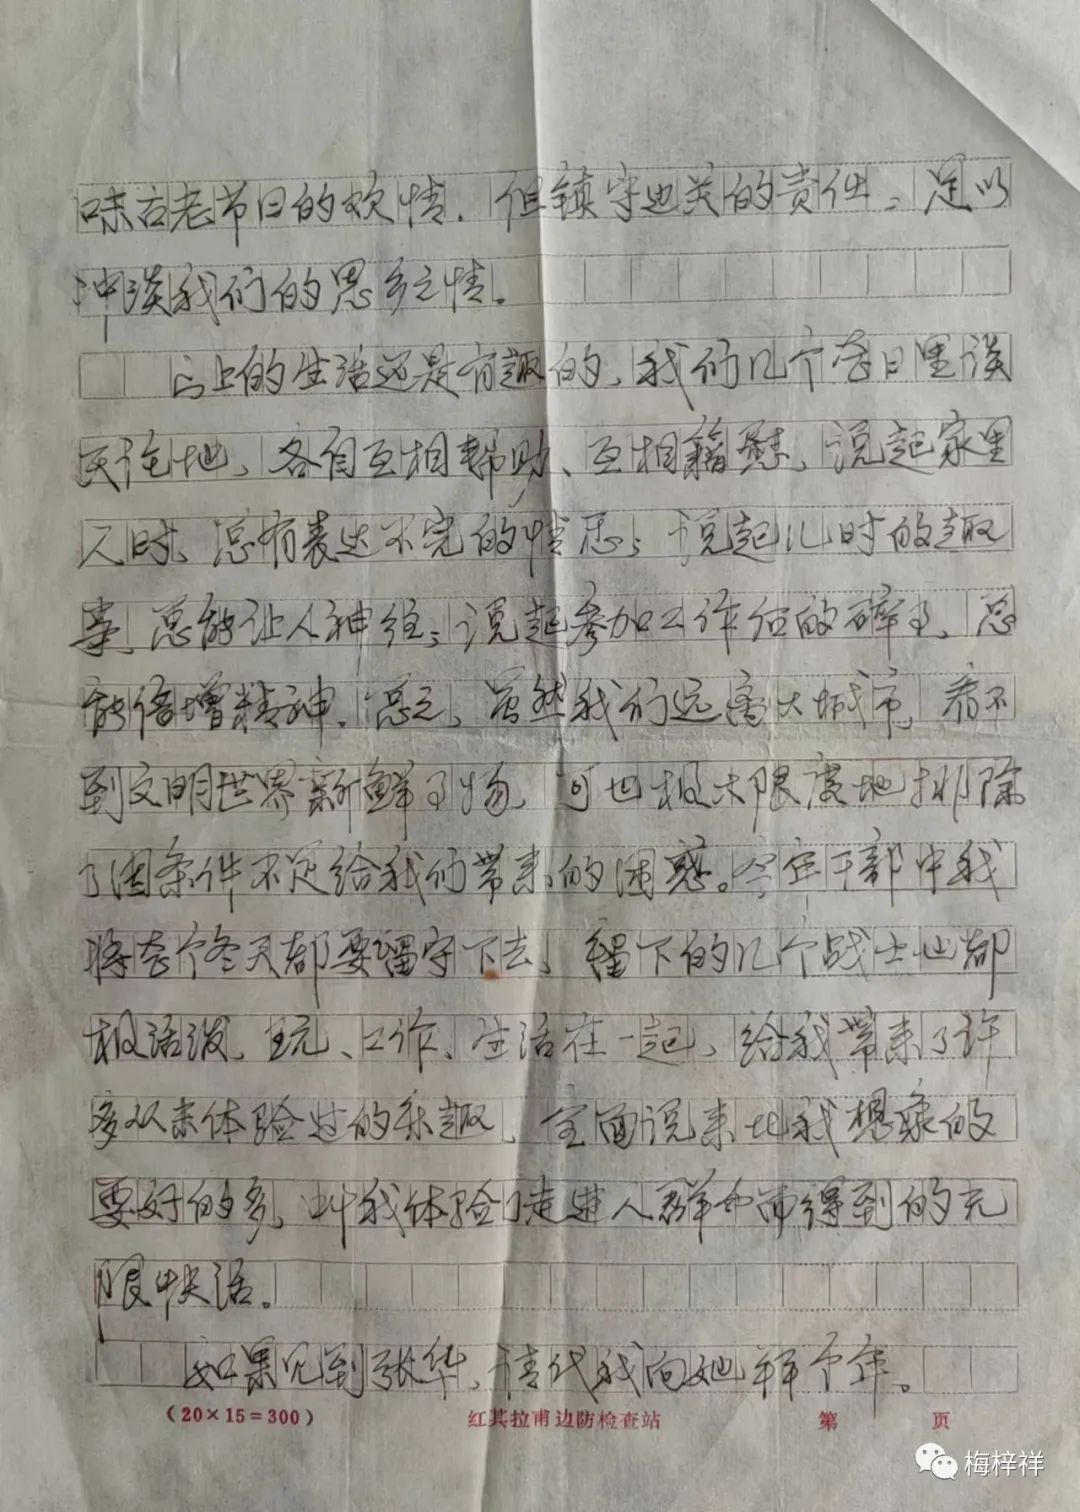 味古老节日的欢情。但镇守边关的责任，足以
冲淡我们的思乡之情。
山上的生活还是有趣的，我们几个冬日里谈
天论地，各自互相帮助、互相籍慰，说起家里
人时，总有表达不完的情思；说起儿时的趣
事，总能让人神往；说起参加工作后的碎事，总
能倍增精神。总之，虽然我们远离大城市，看不
到文明世界新鲜事物，可也极大限度地排除
了因条件不足给我们带来的困惑。今年干部中我
将整个冬天都要留守下去，留下的几个战士也都
极活泼，玩、工作、生活在一起，给我带来了许
多从未体验过的乐趣，全面说来比我想象的
要好的多，叫我体验了走进人群中而得到的无
限快活。
如果见到张华，请代我向她拜个年。
（20×15=300）　红其拉甫边防检查站　第　页
梅梓祥